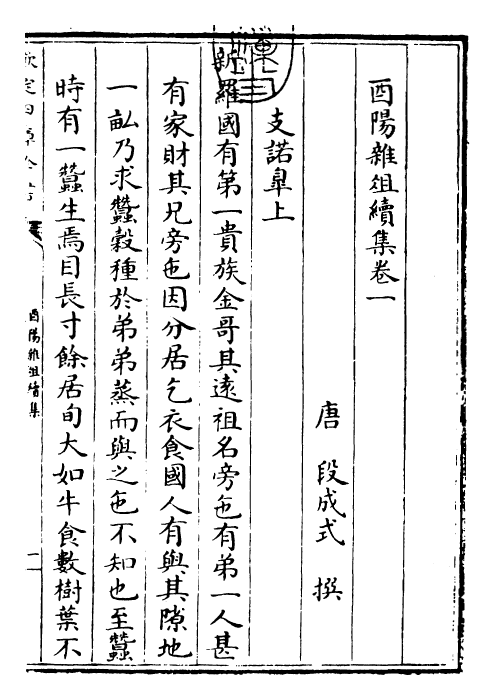 酉陽雜俎續集卷一
唐 段成式 撰
支諾皐上
新羅國有第一貴族金哥其遠祖名旁㐌有弟一人甚
有家財其兄旁㐌因分居乞衣食國人有與其隙地
一畝乃求蠶穀種於弟弟蒸而與之㐌不知也至蠶
時有一蠶生焉目長寸餘居旬大如牛食數樹葉不
欽定四庫全書
酉陽雜俎續集
一